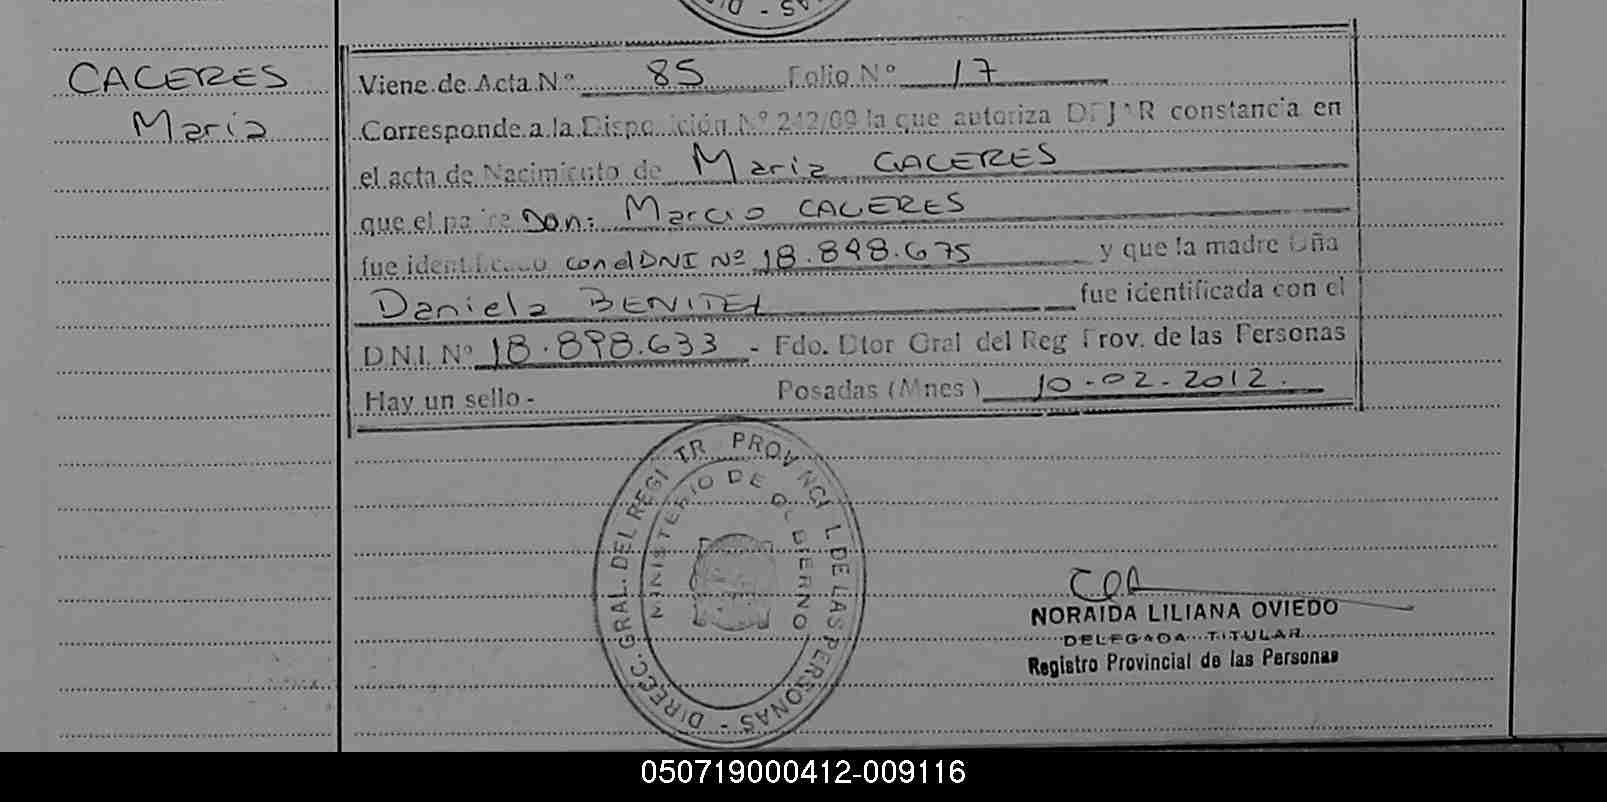 CACERES
Maria
Viene de Acta Nº 85 Folio Nº 17
Corresponde a la Disposición Nº 242/09 la que autoriza DEJAR constancia en
el acta de Nacimiento de Maria CACERES
que el padre Don: Marcio CACERES
fue identificado con el DNI Nº 18.898.675 y que la madre Dña
Daniela BENITEZ fue identificada con el
D.N.I. Nº 18.898.633 - Fdo. Dtor Gral del Reg Prov. de las Personas
Hay un sello - Posadas (Mnes) 10-02-2012.
DIREC. GRAL. DEL REGISTR PROVINCIAL DE LAS PERSONAS -
MINISTERIO DE GOBIERNO
NORAIDA LILIANA OVIEDO
DELEGADA TITULAR
Registro Provincial de las Personas
050719000412-009116